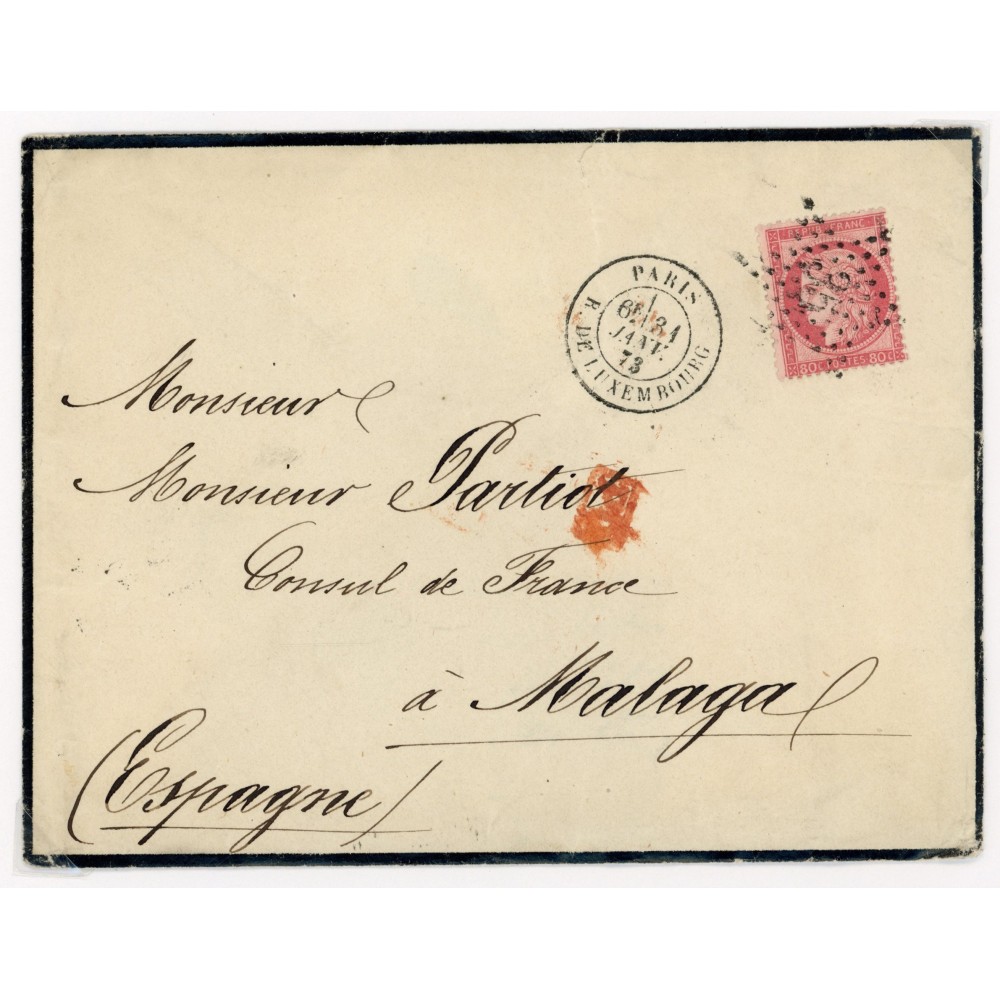 REPUB. FRANC.
80 C POSTES 80 C
PARIS
6E 31
JANV.
73
R. DE LUXEMBOURG
Monsieur
Monsieur Partiot
Consul de France
à Malaga
(Espagne)